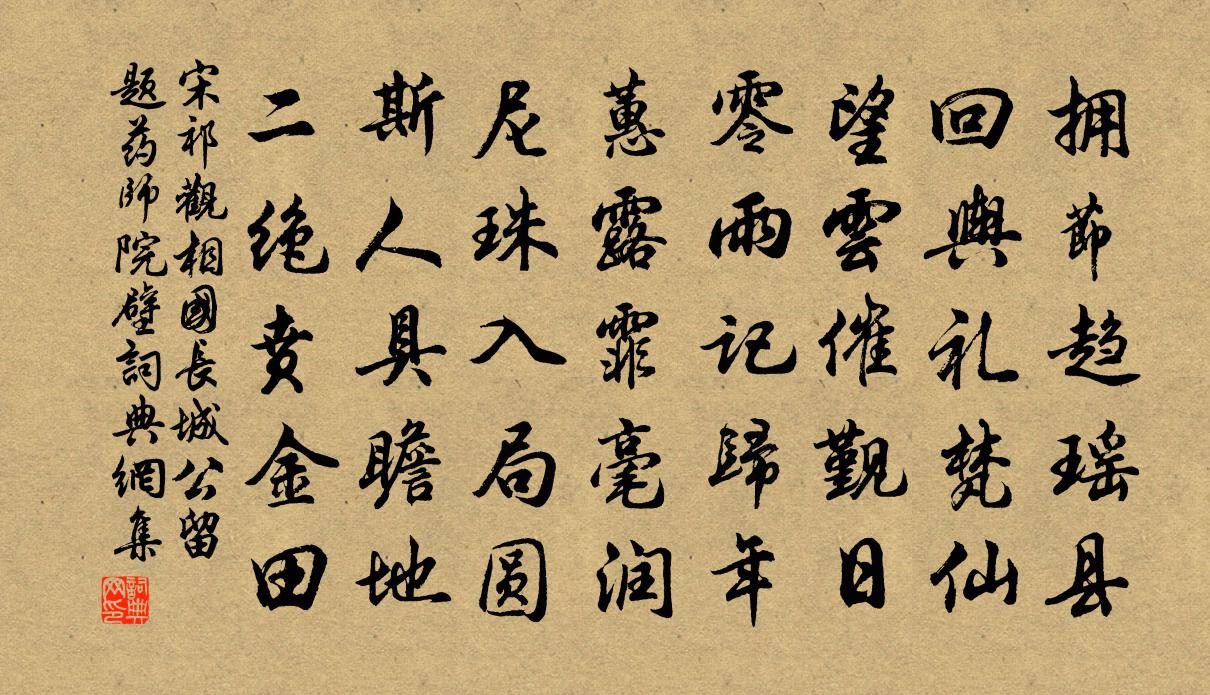 拥節趋瑶县
回輿礼梵仙
望雲催覲日
零雨记歸年
蕙露霏毫润
尼珠入局圆
斯人具瞻地
二绝贲金田
宋祁觀相國長城公留
题药師院壁詞典網集
詞典网印